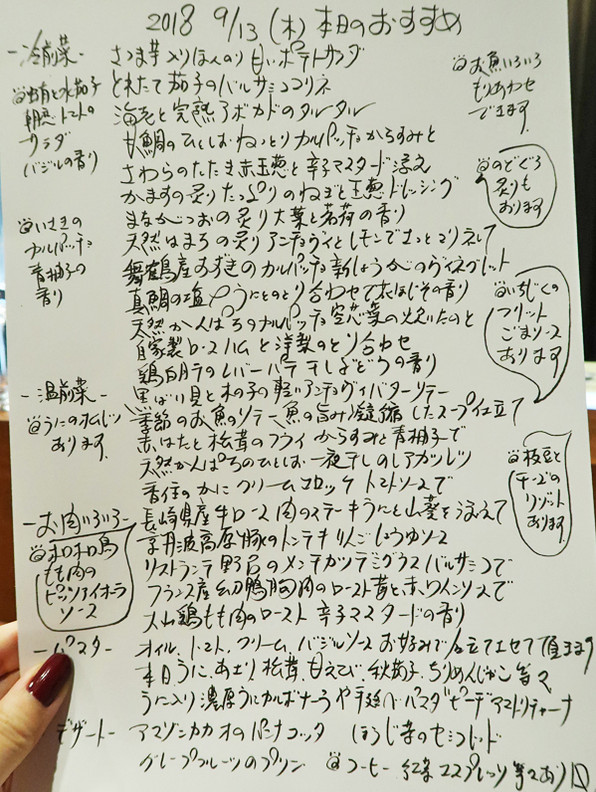 2018 9/13 (木) 本日のおすすめ
-冷前菜-
さつま芋入りほんのり甘いポテトサラダ
とれたて茄子のバルサミコマリネ
海老と完熟アボカドのタルタル
甘鯛のひとしおねっとりカルパッチョからすみと
さわらのたたき赤玉葱と辛子マスタード添え
かますの炙りたっぷりのねぎと玉葱ドレッシング
まながつおの炙り大葉と茗荷の香り
天然はまちの炙りアンチョヴィとレモンでさっとマリネして
舞鶴産すずきのカルパッチョ新しょうがのヴィネグレット
真鯛の塩〆うにとのとり合わせて穂じその香り
天然かんぱちのカルパッチョ空芯菜の
自家製ロースハムと洋梨のとり合わせ
鶏白肝のレバーパテ干しぶどうの香り
@水茄子
トマトの
サラダ
バジルの香り
@いさきの
カルパッチョ
青柚子の
香り
@お魚いろいろ
もりあわせ
できます。
@のどぐろ
炙りも
おります
@いちじくの
フリット
ごまソース
あります
-温前菜-
黒ばい貝と木の子の軽いアンチョヴィバターソテー
季節のお魚のソテー魚の旨み凝縮したスープ仕立て
赤はたと松茸のフライからすみと青柚子で
天然かんぱちのひとしお一夜干しのレアカツレツ
香住のかにクリームコロッケ トマトソースで
@うにのオムレツ
あります。
@枝豆と
チーズの
リゾット
あります。
-お肉いろいろ-
長崎県産牛ロース肉のステーキうにと山葵を添えて
京丹波高原豚のトンテキりんごしょうゆソース
リストランテ野呂のメンチカツデミグラスバルサミコで
フランス産幼鴨胸肉のロースト 赤ワインソースで
大山鶏もも肉のロースト 辛子マスタードの香り
@ホロホロ鳥
もも肉の
ピッツァイオーラ
ソース
-パスタ-
オイル、トマト、クリーム、バジルソース お好みで仕立てさせて頂きます
本日うに、あさり、松茸、甘えび、秋茄子、ちりめんじゃこ等々
うに入り濃厚うにカルボナーラや手延べパスタピーチアマトリチャーナ
デザート-
アマゾンカカオのパンナコッタ ほうじ茶のセミフレッド
グレープフルーツのプリン @コーヒー 紅茶 エスプレッソ等々あり